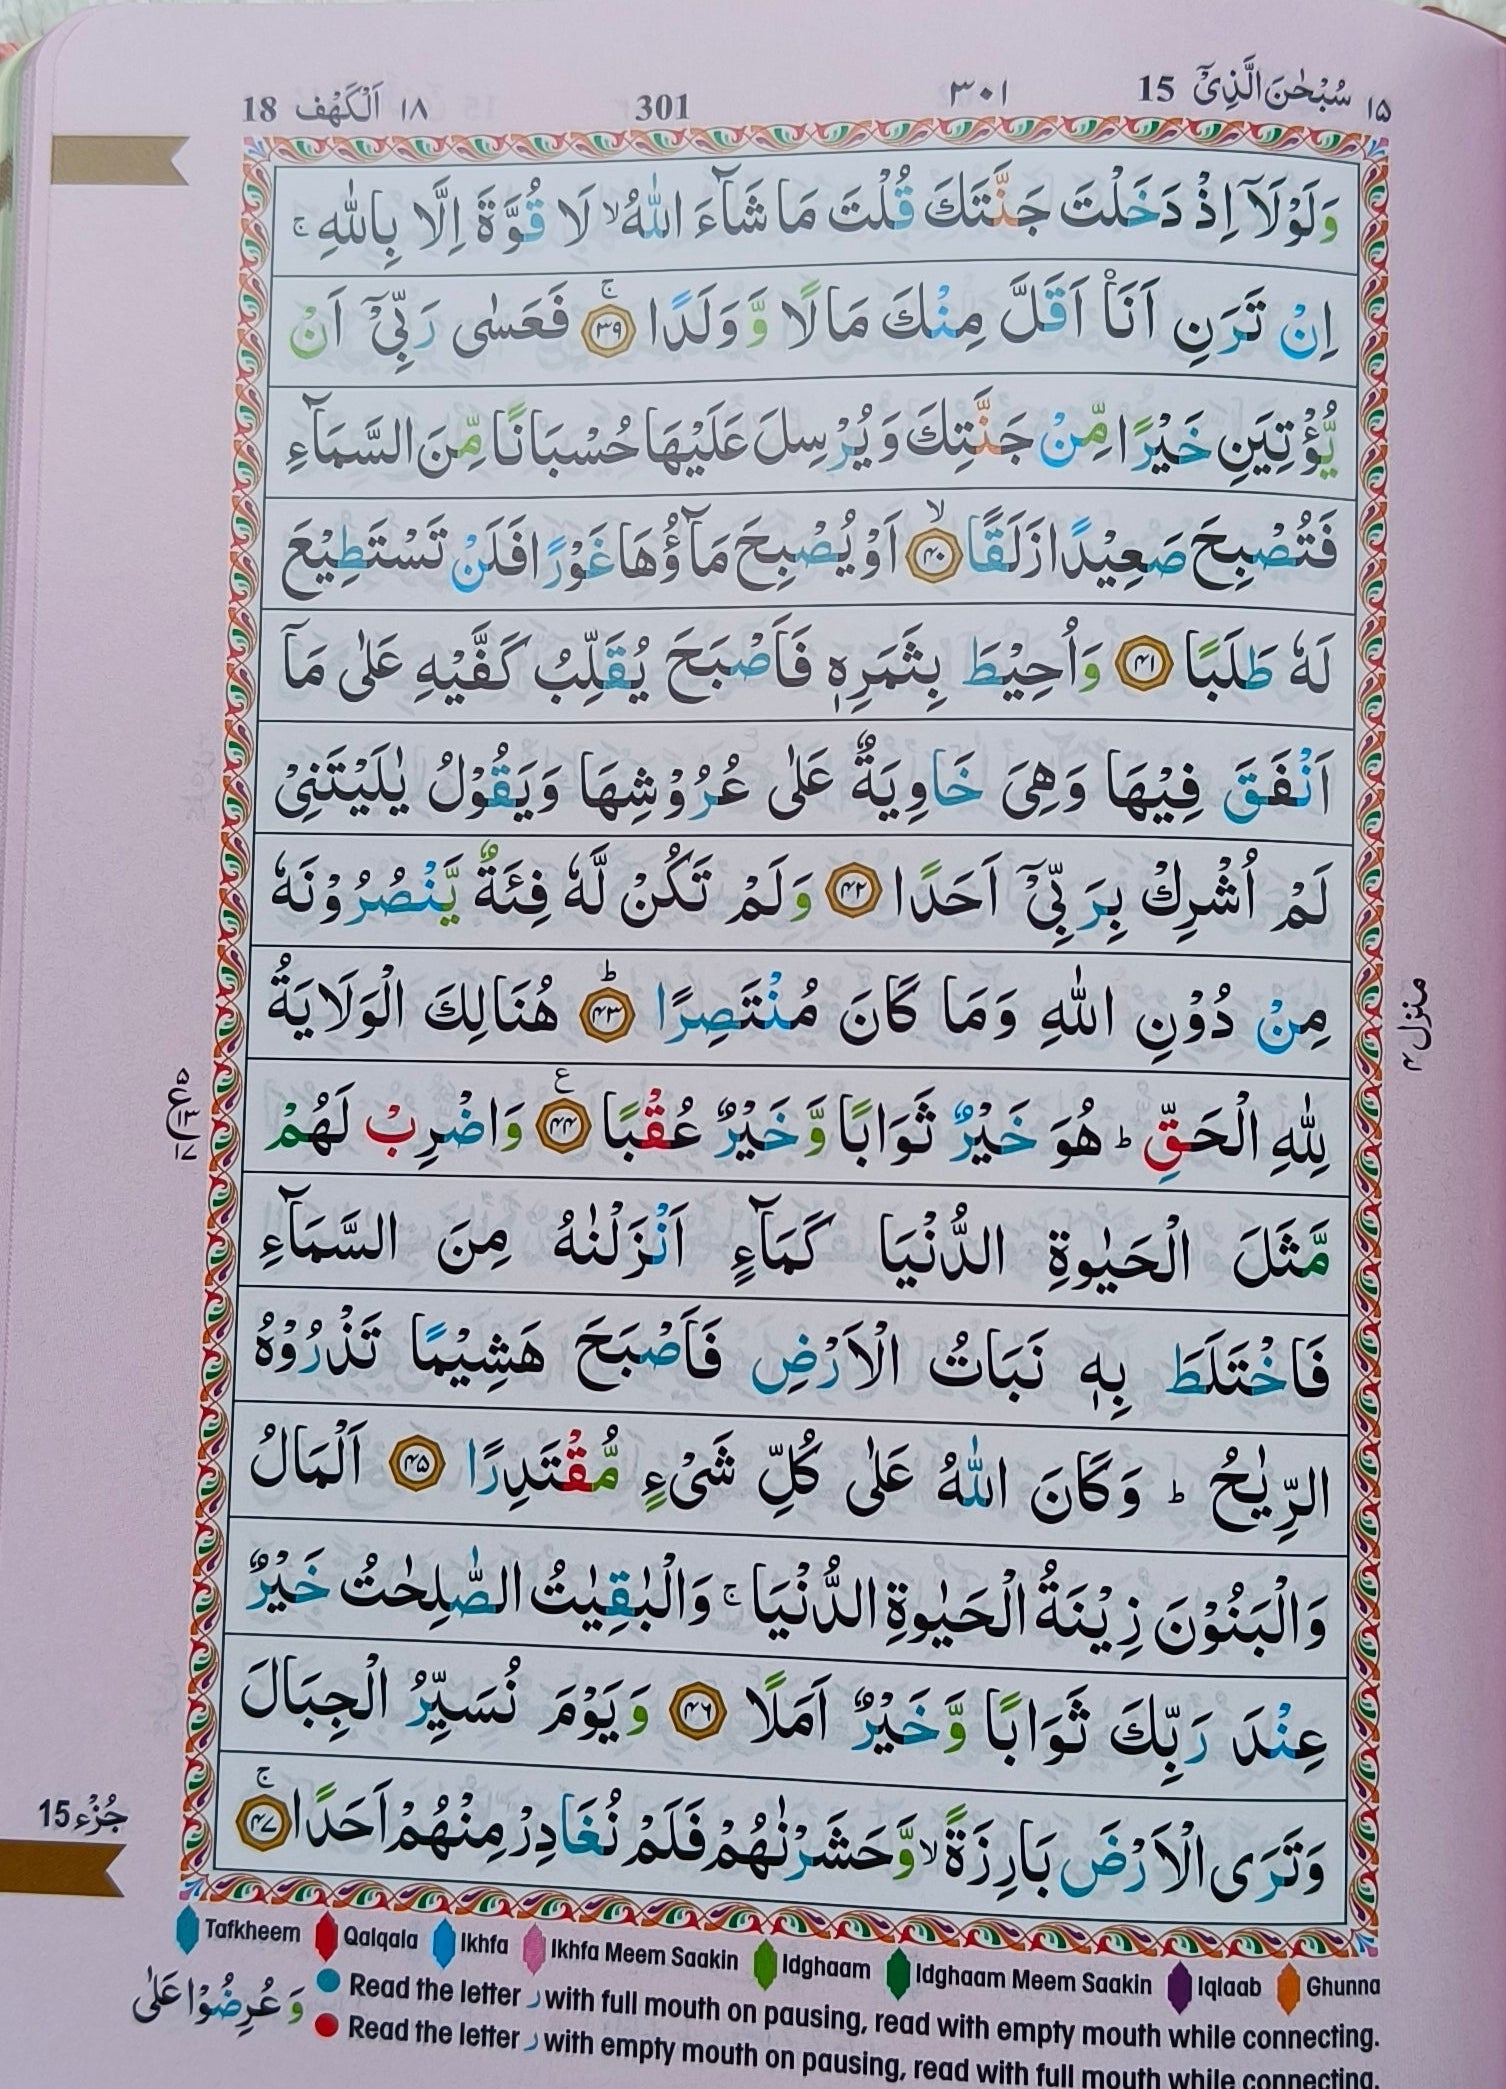 ١٥ سُبْحٰنَ الَّذِیْۤ 15 ٣٠١ 301 ١٨ اَلْكَهْف 18
وَلَوْلَاۤ اِذْ دَخَلْتَ جَنَّتَكَ قُلْتَ مَا شَآءَ اللّٰهُ ۙ لَا قُوَّةَ اِلَّا بِاللّٰهِ ۚ
اِنْ تَرَنِ اَنَا۠ اَقَلَّ مِنْكَ مَالًا وَّ وَلَدًا ۚ ﴿٣٩﴾ فَعَسٰی رَبِّیْۤ اَنْ
یُّؤْتِیَنِ خَیْرًا مِّنْ جَنَّتِكَ وَ یُرْسِلَ عَلَیْهَا حُسْبَانًا مِّنَ السَّمَآءِ
فَتُصْبِحَ صَعِیْدًا زَلَقًا ۙ ﴿٤٠﴾ اَوْ یُصْبِحَ مَآؤُهَا غَوْرًا فَلَنْ تَسْتَطِیْعَ
لَهٗ طَلَبًا ﴿٤١﴾ وَ اُحِیْطَ بِثَمَرِهٖ فَاَصْبَحَ یُقَلِّبُ كَفَّیْهِ عَلٰی مَاۤ
اَنْفَقَ فِیْهَا وَهِیَ خَاوِیَةٌ عَلٰی عُرُوْشِهَا وَیَقُوْلُ یٰلَیْتَنِیْ
لَمْ اُشْرِكْ بِرَبِّیْۤ اَحَدًا ﴿٤٢﴾ وَلَمْ تَكُنْ لَّهٗ فِئَةٌ یَّنْصُرُوْنَهٗ
مِنْ دُوْنِ اللّٰهِ وَمَا كَانَ مُنْتَصِرًا ؕ ﴿٤٣﴾ هُنَالِكَ الْوَلَایَةُ
لِلّٰهِ الْحَقِّ ؕ هُوَ خَیْرٌ ثَوَابًا وَّ خَیْرٌ عُقْبًا ﴿٤٤﴾ ع وَاضْرِبْ لَهُمْ
مَّثَلَ الْحَیٰوةِ الدُّنْیَا كَمَآءٍ اَنْزَلْنٰهُ مِنَ السَّمَآءِ
فَاخْتَلَطَ بِهٖ نَبَاتُ الْاَرْضِ فَاَصْبَحَ هَشِیْمًا تَذْرُوْهُ
الرِّیٰحُ ؕ وَكَانَ اللّٰهُ عَلٰی كُلِّ شَیْءٍ مُّقْتَدِرًا ﴿٤٥﴾ اَلْمَالُ
وَالْبَنُوْنَ زِیْنَةُ الْحَیٰوةِ الدُّنْیَا ۚ وَالْبٰقِیٰتُ الصّٰلِحٰتُ خَیْرٌ
عِنْدَ رَبِّكَ ثَوَابًا وَّ خَیْرٌ اَمَلًا ﴿٤٦﴾ وَیَوْمَ نُسَیِّرُ الْجِبَالَ
وَتَرَی الْاَرْضَ بَارِزَةً ۙ وَّحَشَرْنٰهُمْ فَلَمْ نُغَادِرْ مِنْهُمْ اَحَدًا ۚ ﴿٤٧﴾
منزل ٤
٥
ع
١٣
١٧
جُزْء 15
Tafkheem Qalqala Ikhfa Ikhfa Meem Saakin Idghaam Idghaam Meem Saakin Iqlaab Ghunna
Read the letter ر with full mouth on pausing, read with empty mouth while connecting.
Read the letter ر with empty mouth on pausing, read with full mouth while connecting.
وَ عُرِضُوْا عَلٰی